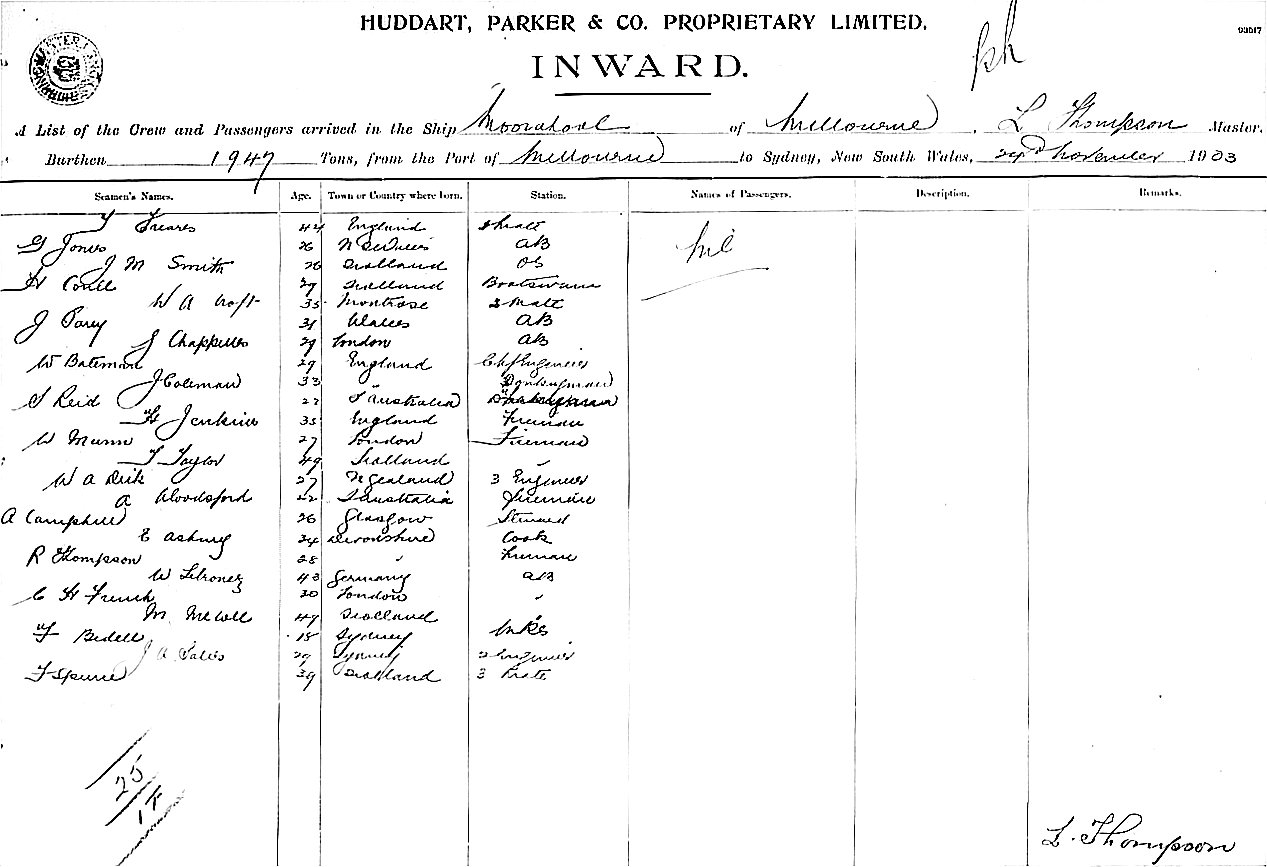 HUDDART, PARKER & CO. PROPRIETARY LIMITED.
93517
INWARD.
A List of the Crew and Passengers arrived in the Ship Moorabool of Melbourne, L Thompson Master.
Burthen 1947 Tons, from the Port of Melbourne to Sydney, New South Wales, November 1903
Seamen's Names. Age. Town or Country where born. Station. Names of Passengers. Description. Remarks.
44 England Nil
G Jones 26 AB
J M Smith 26 Scotland OS
27 Scotland Boatswain
W A Croft 35 Montrose 2 Mate
J 31 Wales AB
J Chappelles 29 London AB
W Bateman 29 England Chf Engineer
J Coleman 33 " Donkeyman
S Reid 22 S Australia
H Jenkins 35 England Fireman
W Munn 27 London Fireman
T Taylor 49 Scotland "
W A Dick 27 N Zealand 3 Engineer
A Woodsford 22 S Australia Fireman
A Camphill 26 Glasgow Steward
E Asbury 34 Devonshire Cook
R Thompson 28 " Fireman
W 43 Germany AB
C H French 20 London "
M 47 Scotland "
F Bedell 18 Sydney
J A 29 Sydney 2 Engineer
F 39 Scotland 3
25
L. Thompson